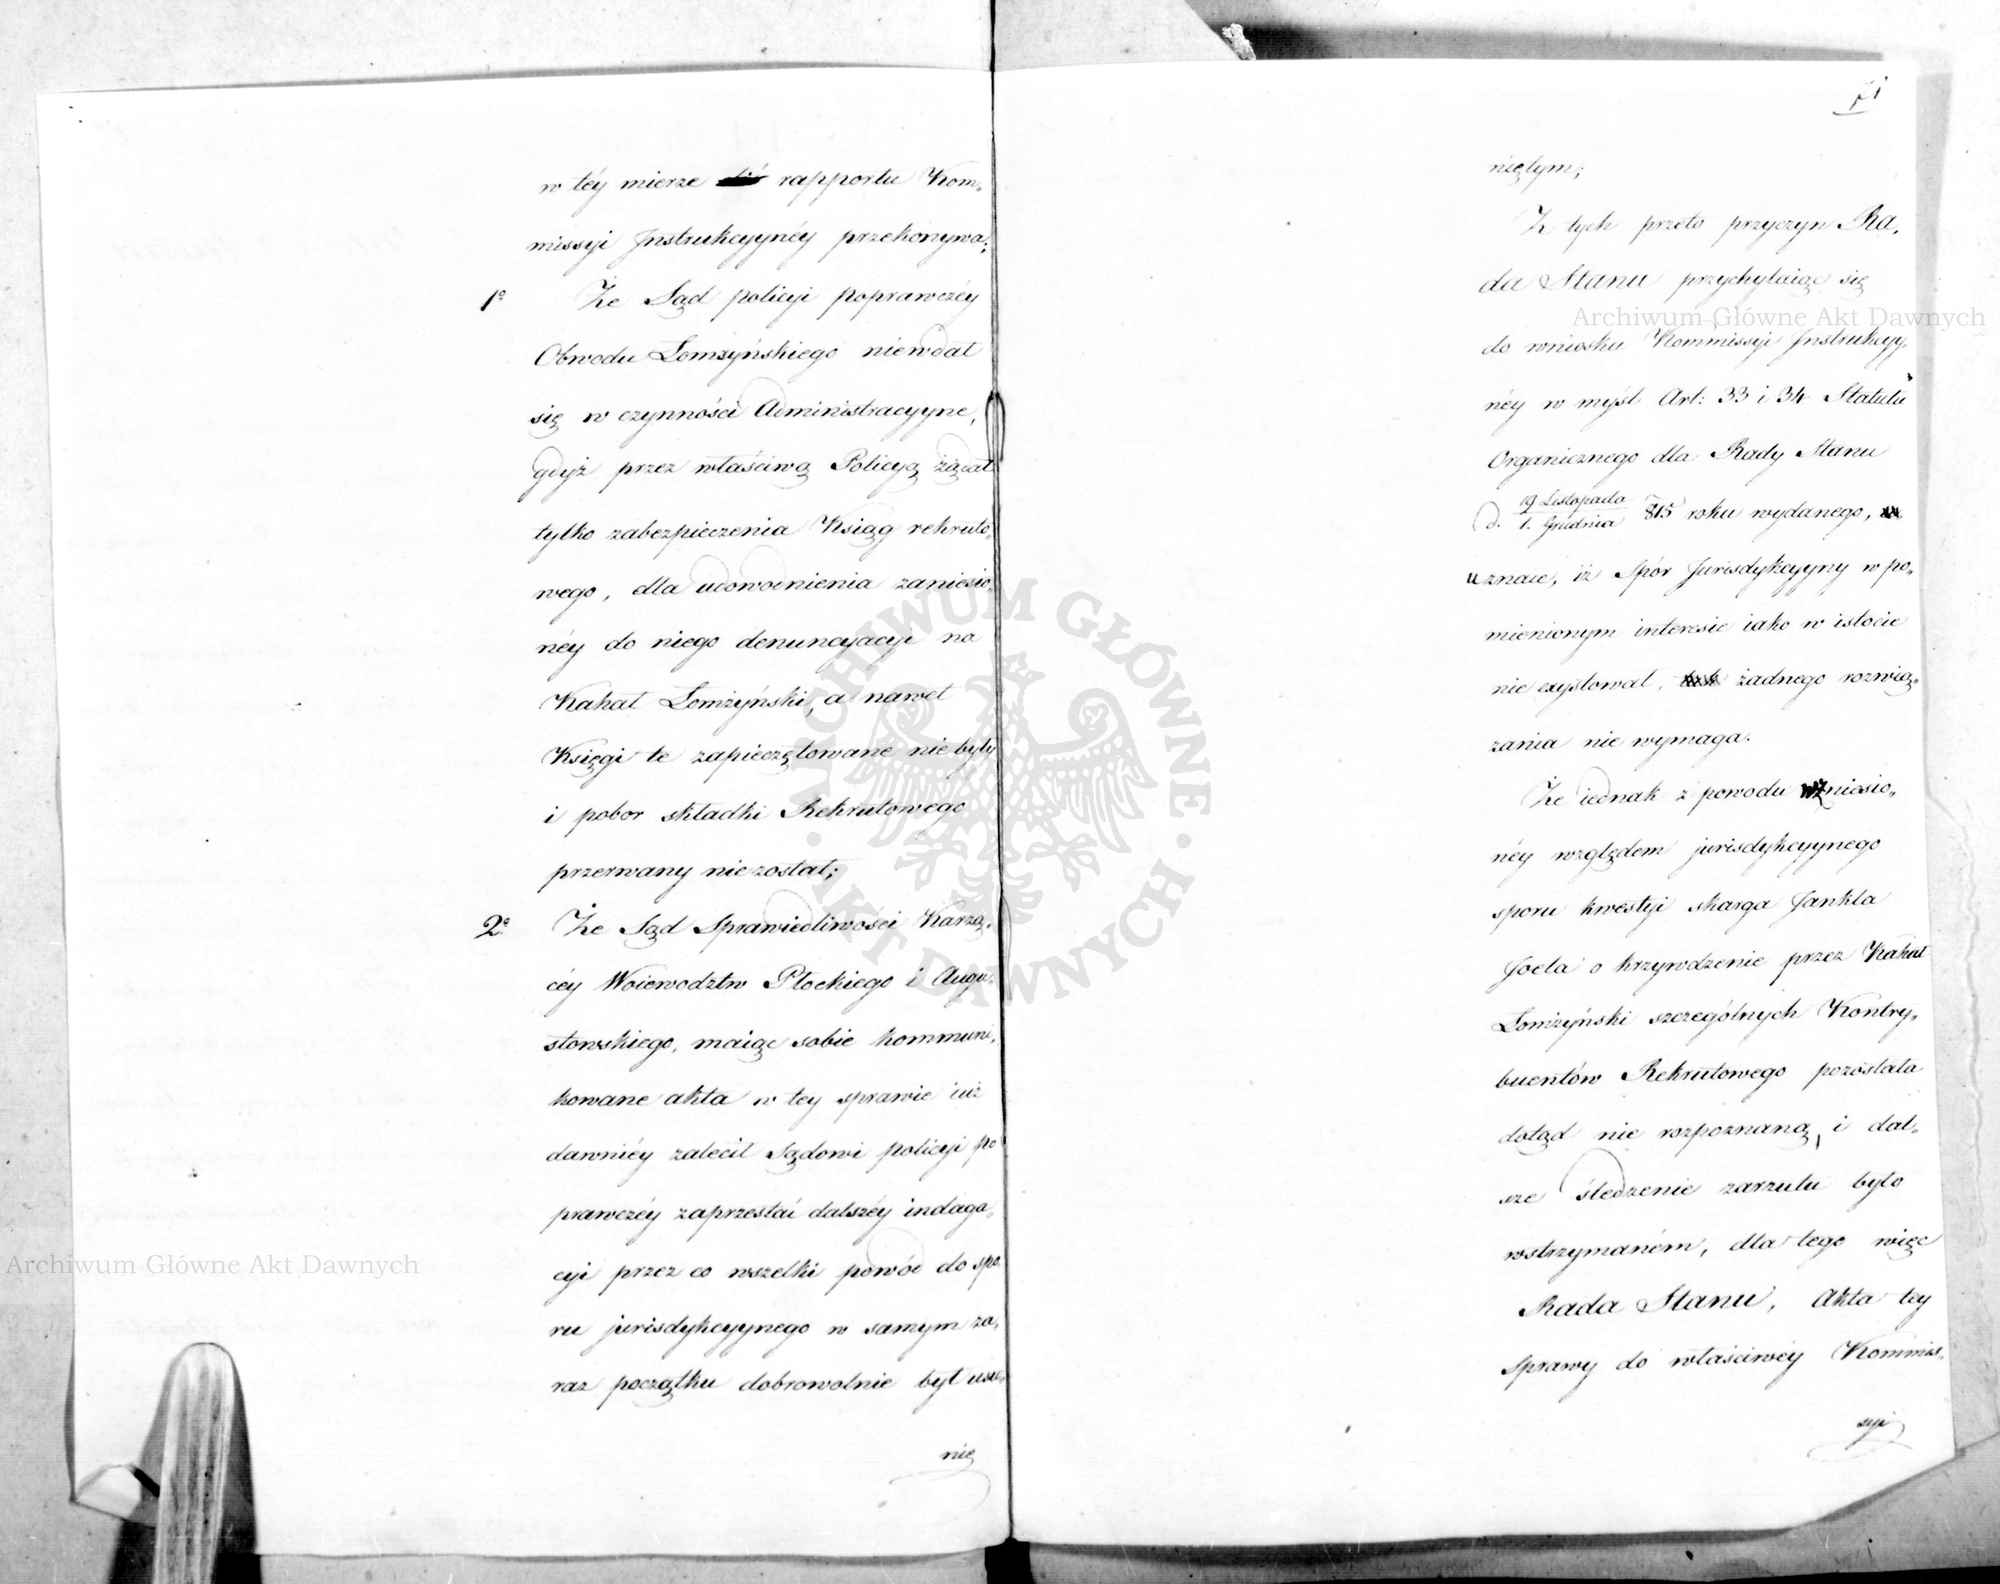 w téy mierze rapportu Kom„
missyi Instrukcyynéy przekonywa;
1º Że Sąd policyi poprawczéy
Obwodu Łomżyńskiego niewdał
się w czynności Administracyyne,
gdyż przez właściwą Policyą żądał
tylko zabezpieczenia Ksiąg rekruto„
wego, dla udowodnienia zaniesio„
néy do niego denuncyacyi na
Kahał Łomżyński, a nawet
Księgi te zapieczętowane nie były
i pobor składki Rekrutowego
przerwany nie został;
2º Że Sąd Sprawiedliwości Karzą„
céy Woiewództw Płockiego i Augu„
stowskiego, maiąc sobie kommuni„
kowane akta w tey sprawie iuż
dawniéy zalecił Sądowi policyi po
prawczéy zaprzestać dalszéy indaga„
cyi przez co wszelki powód do spo„
ru jurisdykcyynego w samym za„
raz początku dobrowolnie był usu„
nię
71
niętym;
Z tych przeto przyczyn Ra„
da Stanu przychylaiąc się
do wniosku Kommissyi Instrukcyy„
néy w myśl Art: 33 i 34 Statutu
Organicznego dla Rady Stanu
d. 19 Listopada / 1. Grudnia 815 roku wydanego,
uznaie, iż Spór Jurisdykcyyny w po„
mienionym interesie iako w istocie
nie exystował, żadnego rozwią„
zania nie wymaga.
Że iednak z powodu wzniesio„
néy względem jurisdykcyynego
sporu kwestyi skarga Jankla
Joela o krzywdzenie przez Kahał
Łomżyński szczególnych Kontry„
buentów Rekrutowego pozostała
dotąd nie rozpoznaną, i dal„
sze śledzenie zarzutu było
wstrzymaném, dla tego więc
Rada Stanu, Akta tey
Sprawy do właściwéy Kommis„
syi
Archiwum Główne Akt Dawnych
Archiwum Główne Akt Dawnych
ARCHIWUM GŁÓWNE · AKT DAWNYCH ·